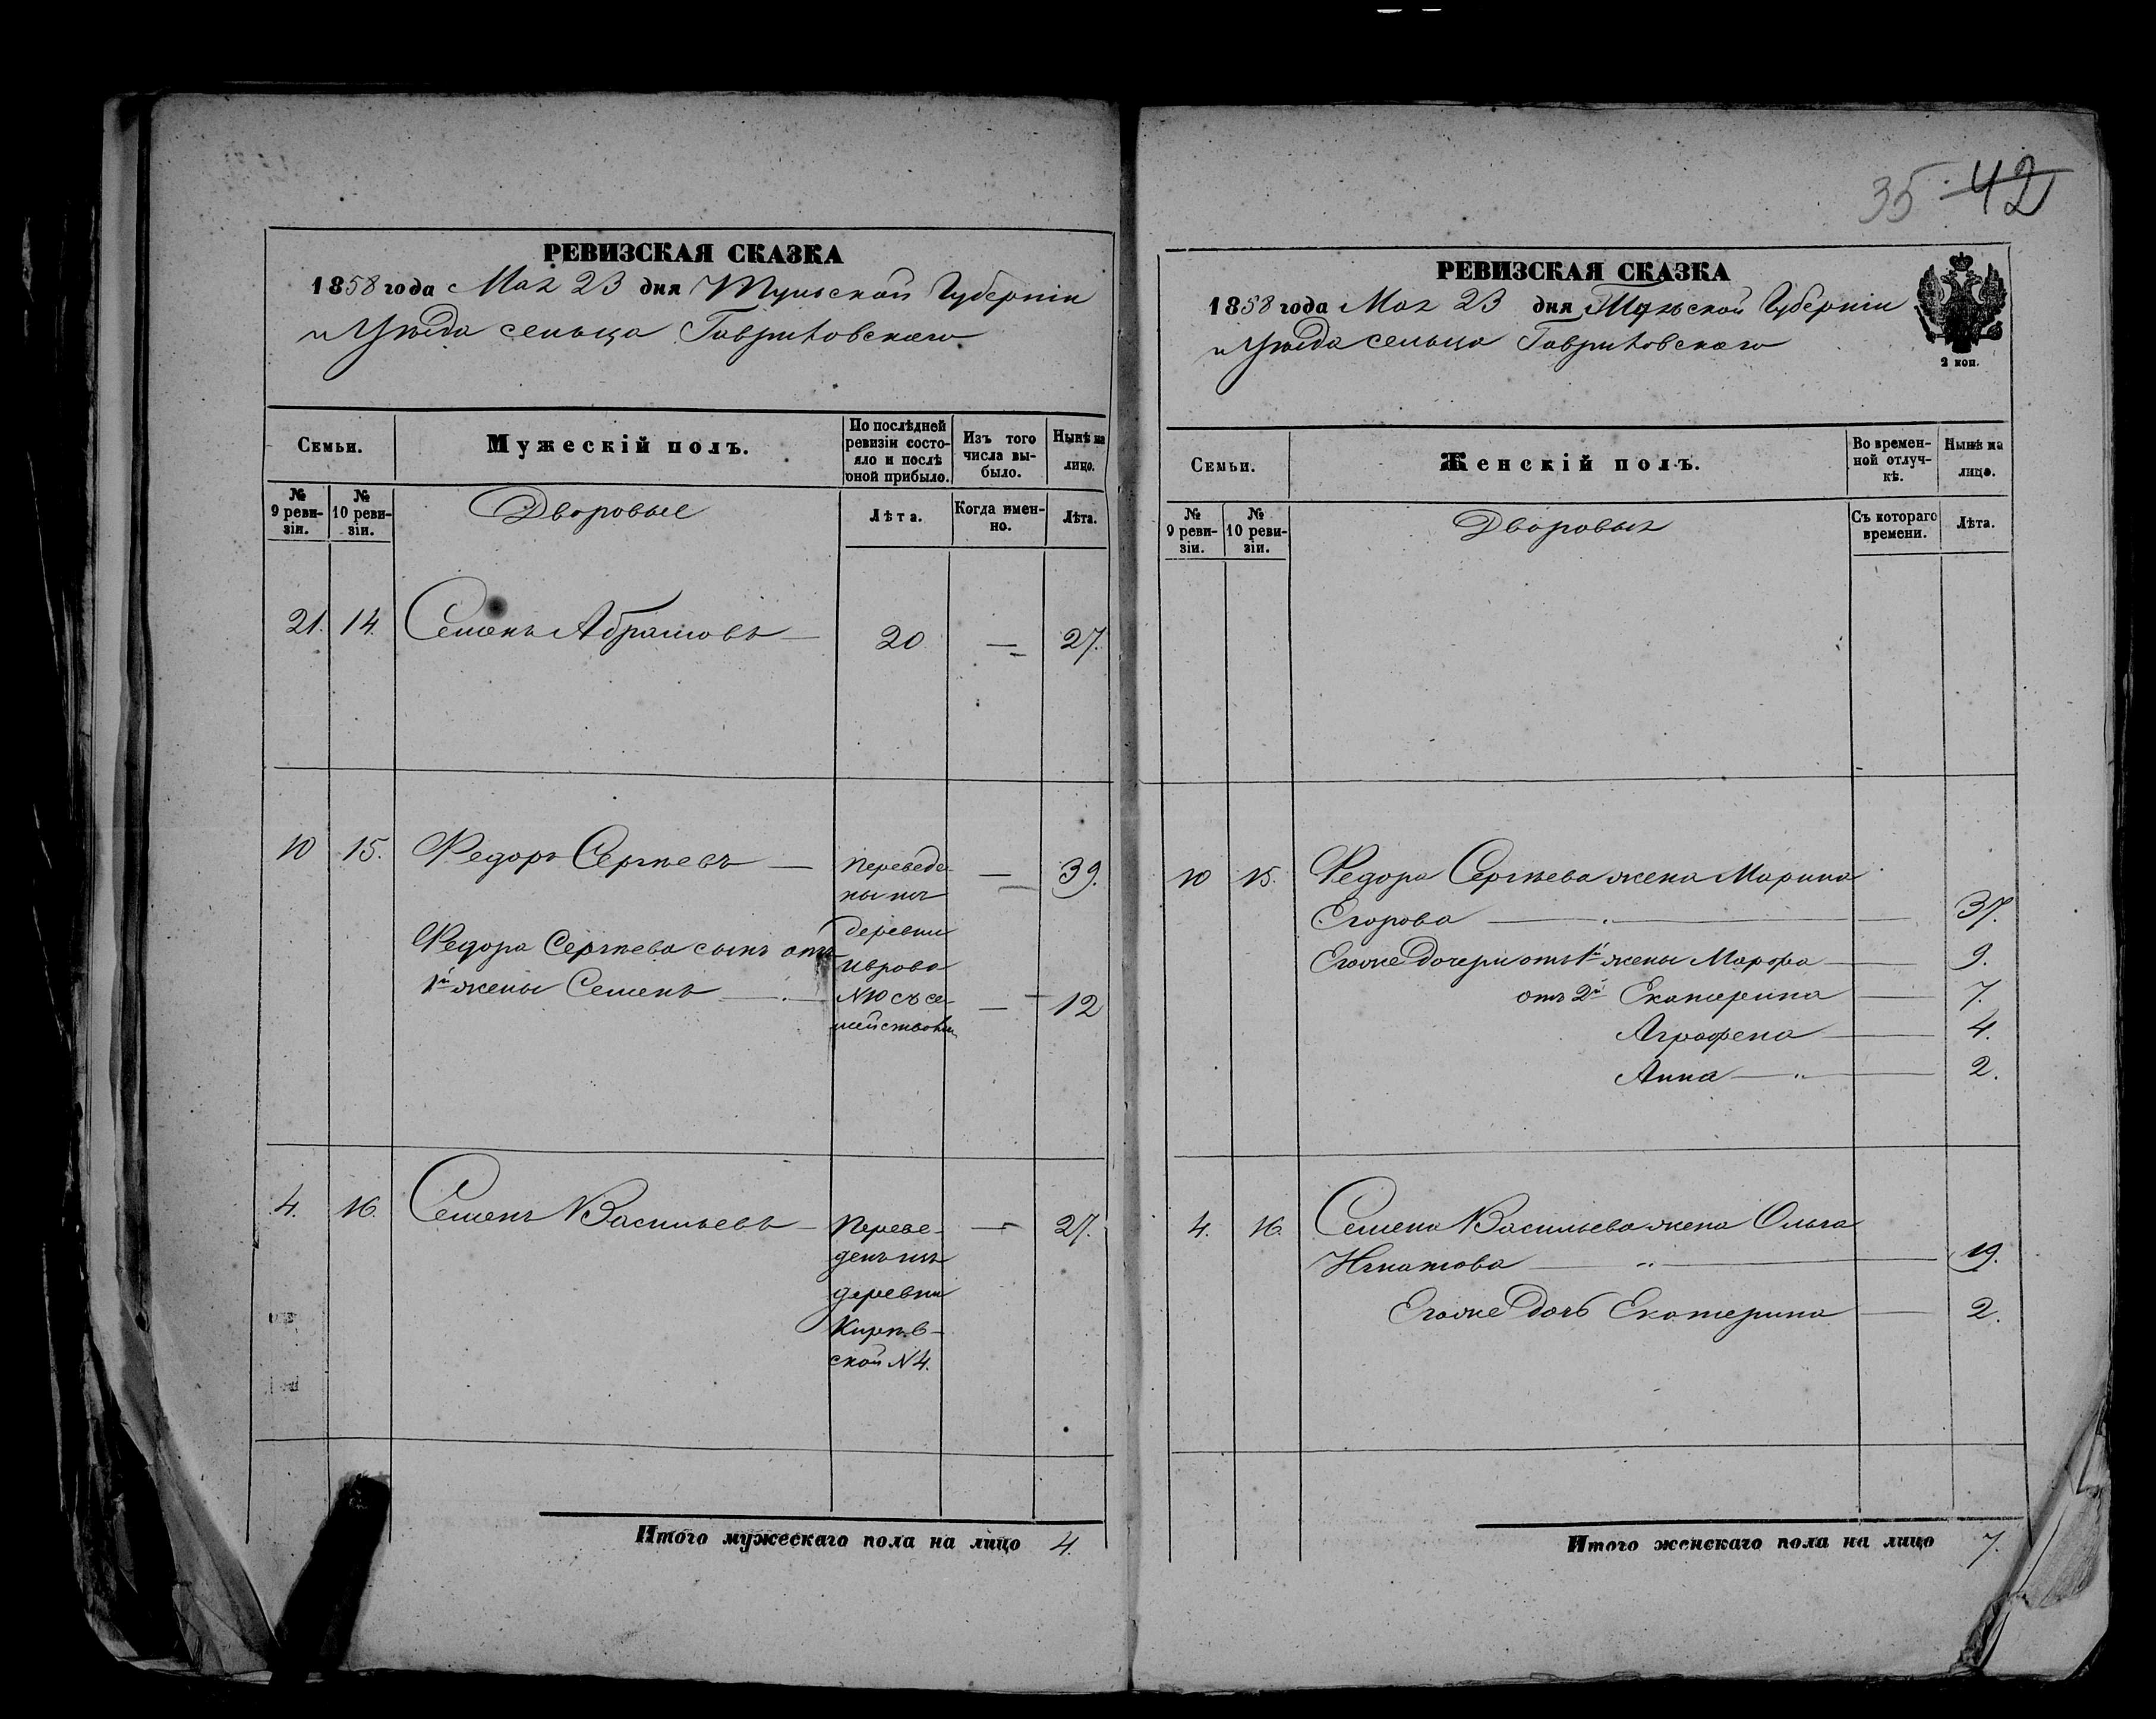 35 42
РЕВИЗСКАЯ СКАЗКА
1858 года Мая 23 дня Тульской Губерніи
и Уѣзда сельца Гавриковскаго
Семьи.
Мужескій полъ.
По послѣдней ревизіи состояло и послѣ оной прибыло.
Изъ того числа выбыло.
Нынѣ на лицо.
№ 9 ревизіи.
№ 10 ревизіи.
Дворовые
Лѣта.
Когда именно.
Лѣта.
21. 14. Семенъ Абрамовъ — 20 — 27.
10 15. Федоръ Сергѣевъ — Переведены изъ деревни — 39.
Федора Сергѣева сынъ отъ
1й жены Семенъ — N 10 съ семействомъ — 12
4. 16. Семенъ Васильевъ — Переведенъ изъ деревни Кирѣевской N 4. — 27.
Итого мужескаго пола на лицо 4.
РЕВИЗСКАЯ СКАЗКА
1858 года Мая 23 дня Тульской Губерніи
и Уѣзда сельца Гавриковскаго
2 коп.
Семьи.
Женскій полъ.
Во временной отлучкѣ.
Нынѣ на лицо.
№ 9 ревизіи.
№ 10 ревизіи.
Дворовыя
Съ котораго времени.
Лѣта.
10 15. Федора Сергѣева жена Марина
Егорова — 37.
Егоже дочери отъ 1й жены Марфа — 9.
отъ 2й Екатерина — 7.
Аграфена — 4.
Анна — 2.
4. 16. Семена Васильева жена Ольга
Игнатова — 19.
Егоже дочь Екатерина — 2.
Итого женскаго пола на лицо 7.